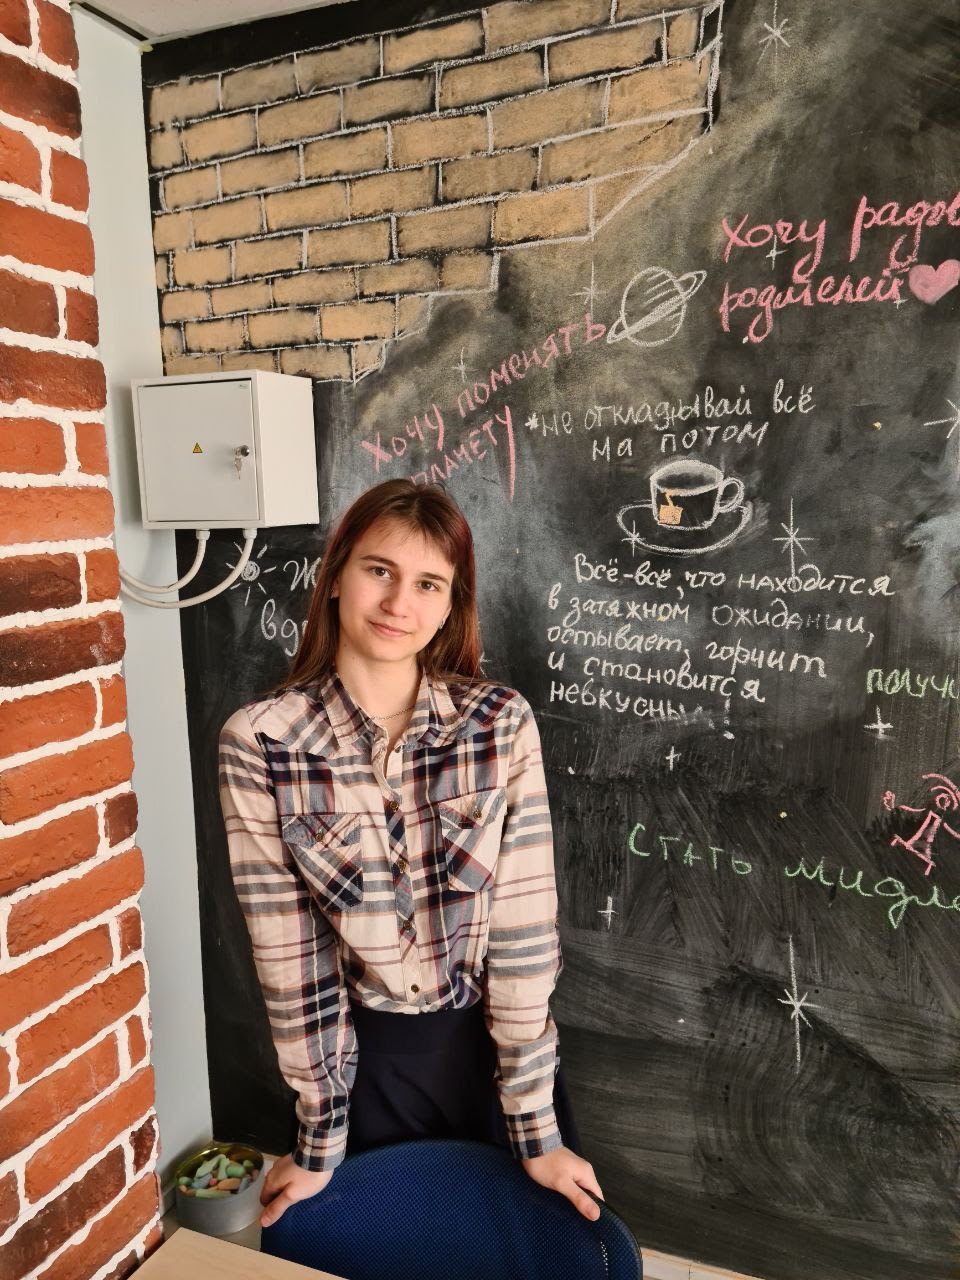 Хочу
родителей
Хочу поменять
планету
*не откладывай всё
на потом
Всё-всё, что находится
в затяжном ожидании,
остывает, горчит
и становится
невкусным!
Стать